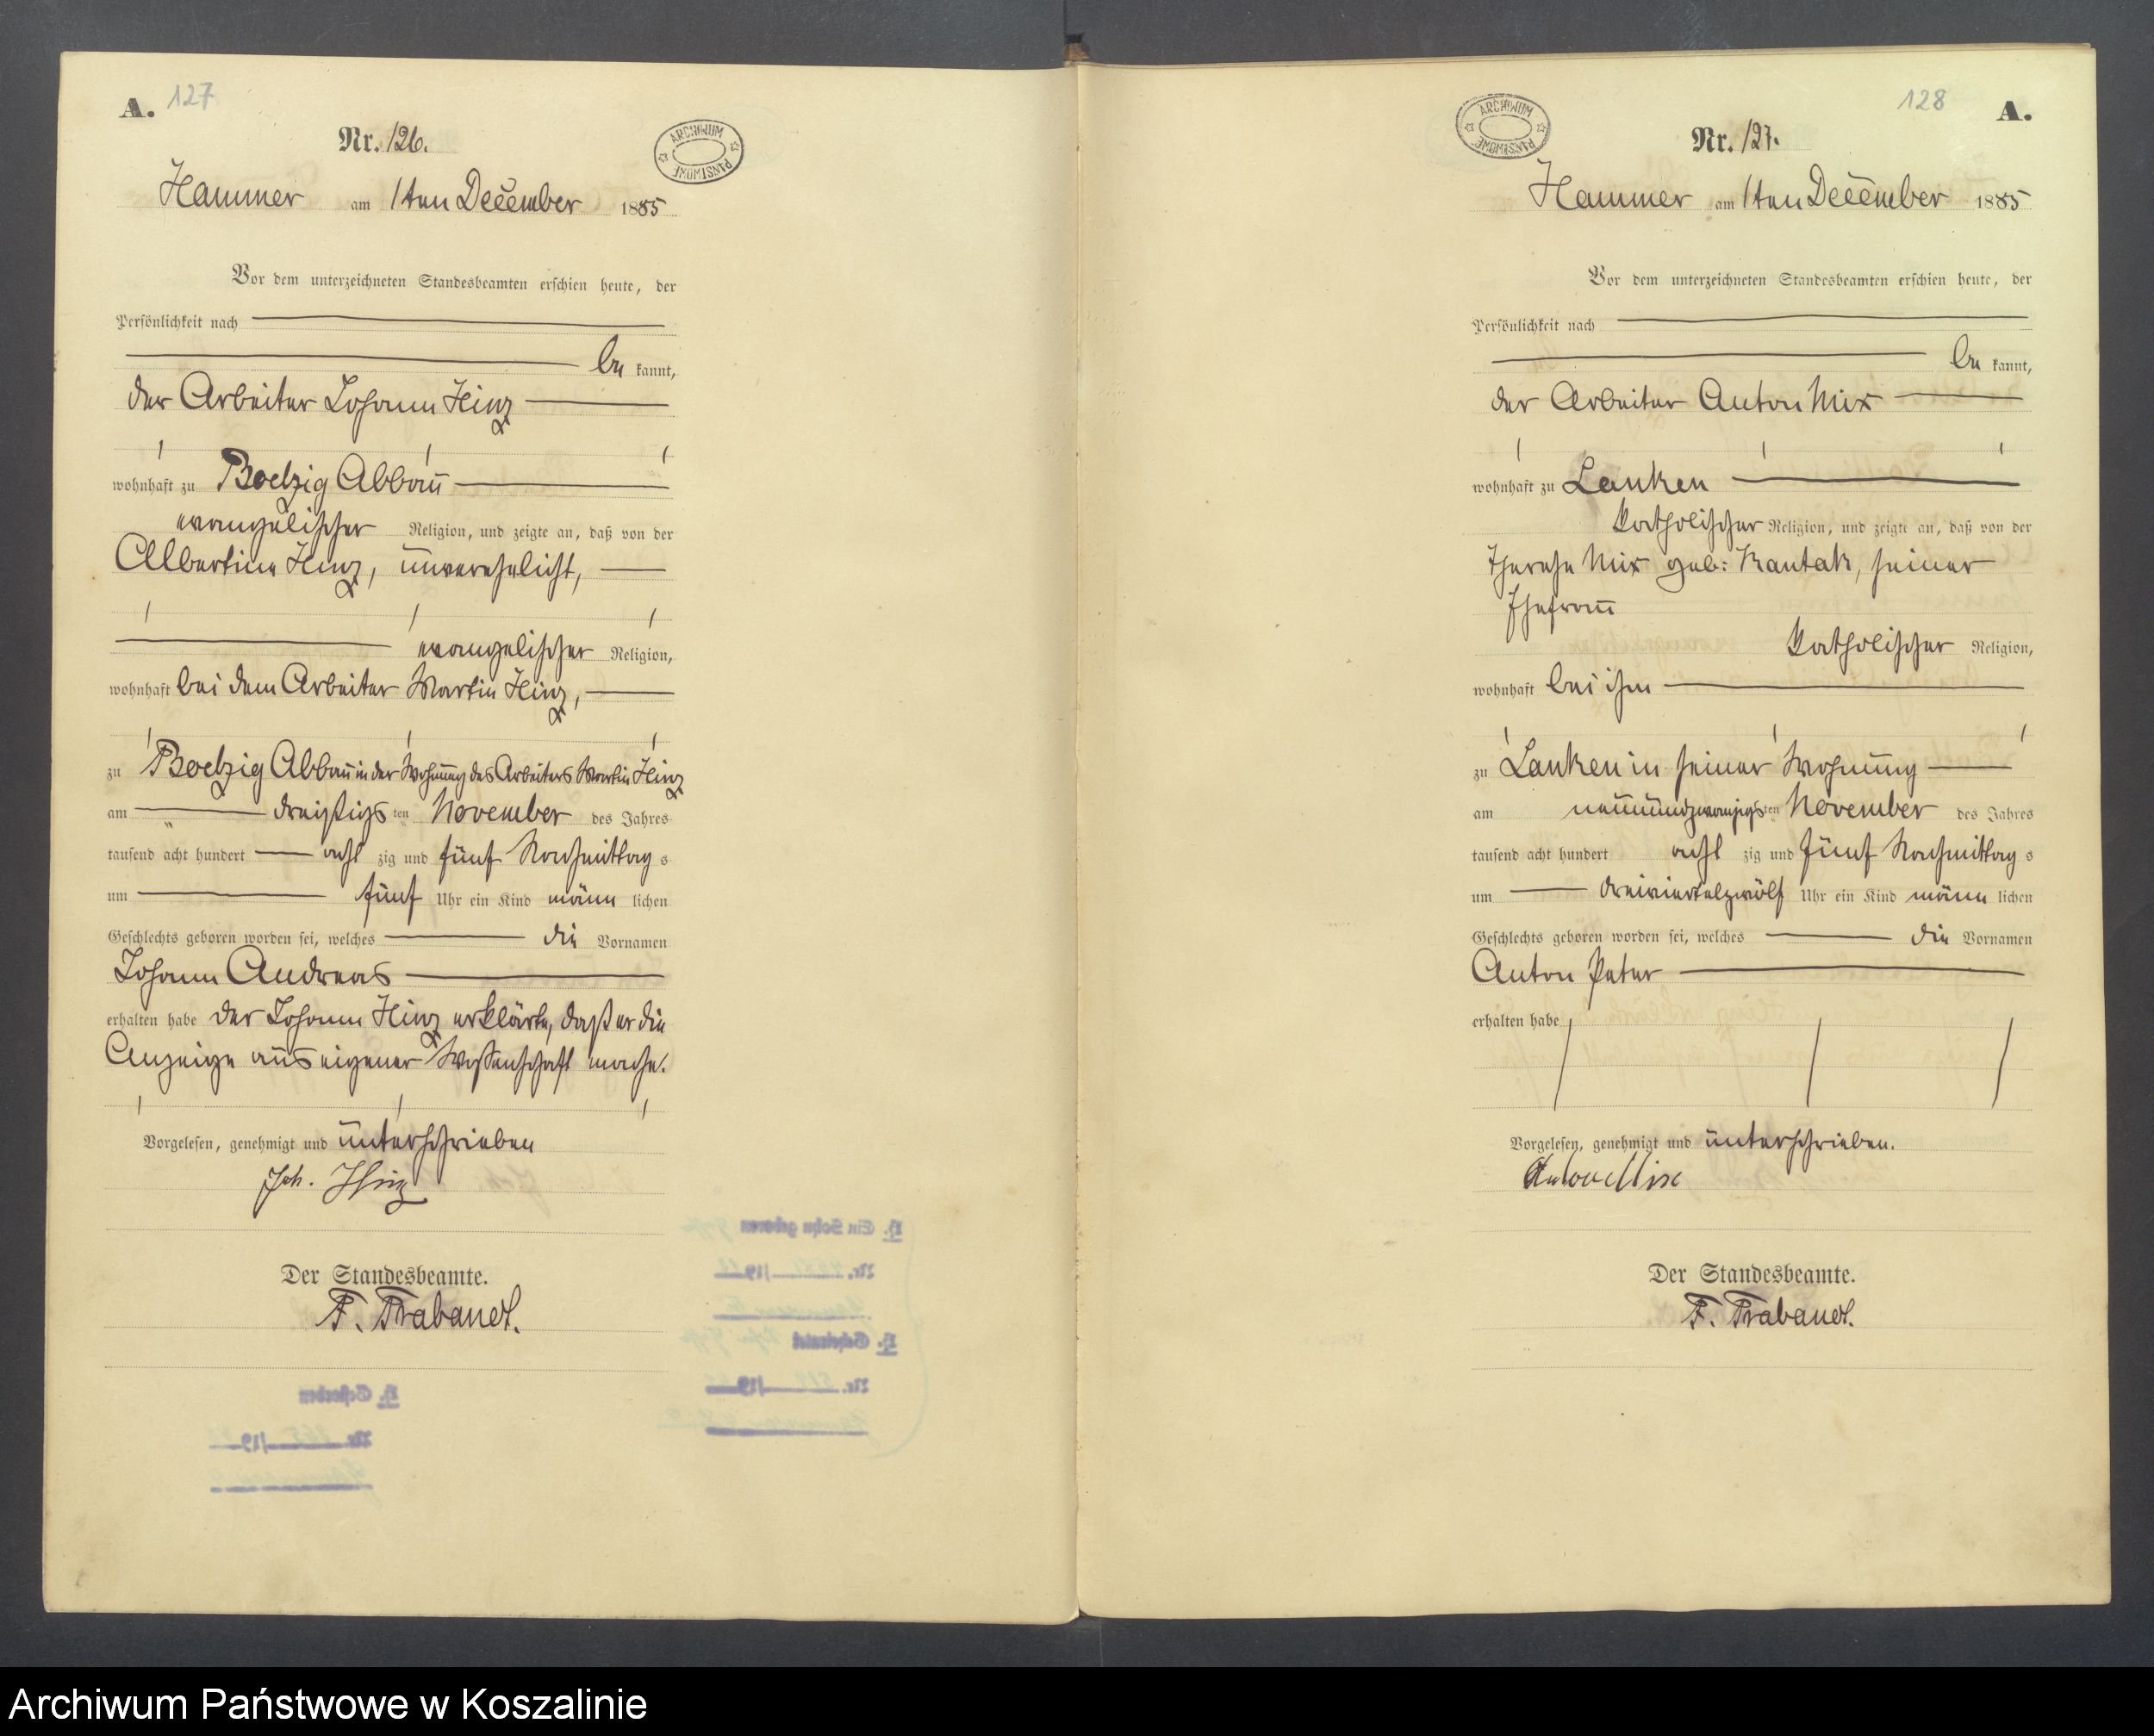 A. 127
Nr. 126.
ARCHIWUM PAŃSTWOWE
Hammer am 1ten December 1885
Vor dem unterzeichneten Standesbeamten erschien heute, der
Persönlichkeit nach
be kannt,
der Arbeiter Johann Hinz
wohnhaft zu Boelzig Abbau
evangelischer Religion, und zeigte an, daß von der
Albertine Hinz, unverehelicht,
evangelischer Religion,
wohnhaft bei dem Arbeiter Martin Hinz,
zu Boelzig Abbau in der Wohnung des Arbeiters Martin Hinz
am dreißigs ten November des Jahres
tausend acht hundert acht zig und fünf Nachmittag s
um fünf Uhr ein Kind männ lichen
Geschlechts geboren worden sei, welches die Vornamen
Johann Andreas
erhalten habe der Johann Hinz erklärte, daß er die
Anzeige aus eigener Wissenschaft mache.
Vorgelesen, genehmigt und unterschrieben
Joh. Hinz
Der Standesbeamte.
F. Trabandt.
H. Ein Sohn geboren
Nr. /19
H. Geheiratet
Nr. /19
H. Gestorben
Nr. /19
128 A.
ARCHIWUM PAŃSTWOWE
Nr. 127.
Hammer am 1ten December 1885
Vor dem unterzeichneten Standesbeamten erschien heute, der
Persönlichkeit nach
be kannt,
der Arbeiter Anton Mix
wohnhaft zu Lanken
katholischer Religion, und zeigte an, daß von der
Therese Mix geb: Kantak, seiner
Ehefrau
katholischer Religion,
wohnhaft bei ihm
zu Lanken in seiner Wohnung
am neunundzwanzigs ten November des Jahres
tausend acht hundert acht zig und fünf Nachmittag s
um dreiviertelzwölf Uhr ein Kind männ lichen
Geschlechts geboren worden sei, welches die Vornamen
Anton Peter
erhalten habe
Vorgelesen, genehmigt und unterschrieben.
Anton Mix
Der Standesbeamte.
F. Trabandt.
Archiwum Państwowe w Koszalinie